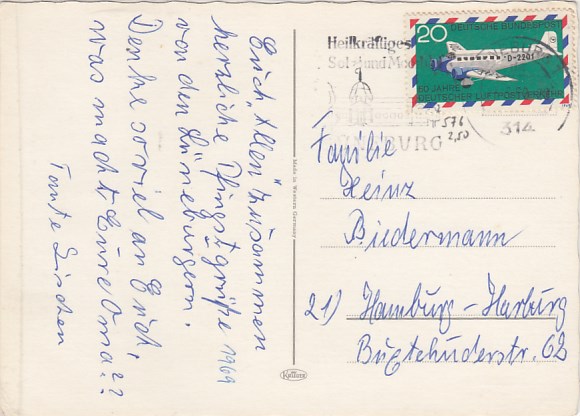 Euch "Allen" zusammen
herzliche Pfingstgrüße 1969
von den Lüneburgern.
Denke soviel an Euch,
was macht Eure Oma??
Tante Lieschen
Made in Western Germany
Krüger
Heilkräftiges
Solz und Moor
BURG
314
20
DEUTSCHE BUNDESPOST
D-2201
50 JAHRE
DEUTSCHER LUFTPOSTVERKEHR
576
2,50
Familie
Heinz
Biedermann
21) Hamburg-Harburg
Buxtehuderstr. 62